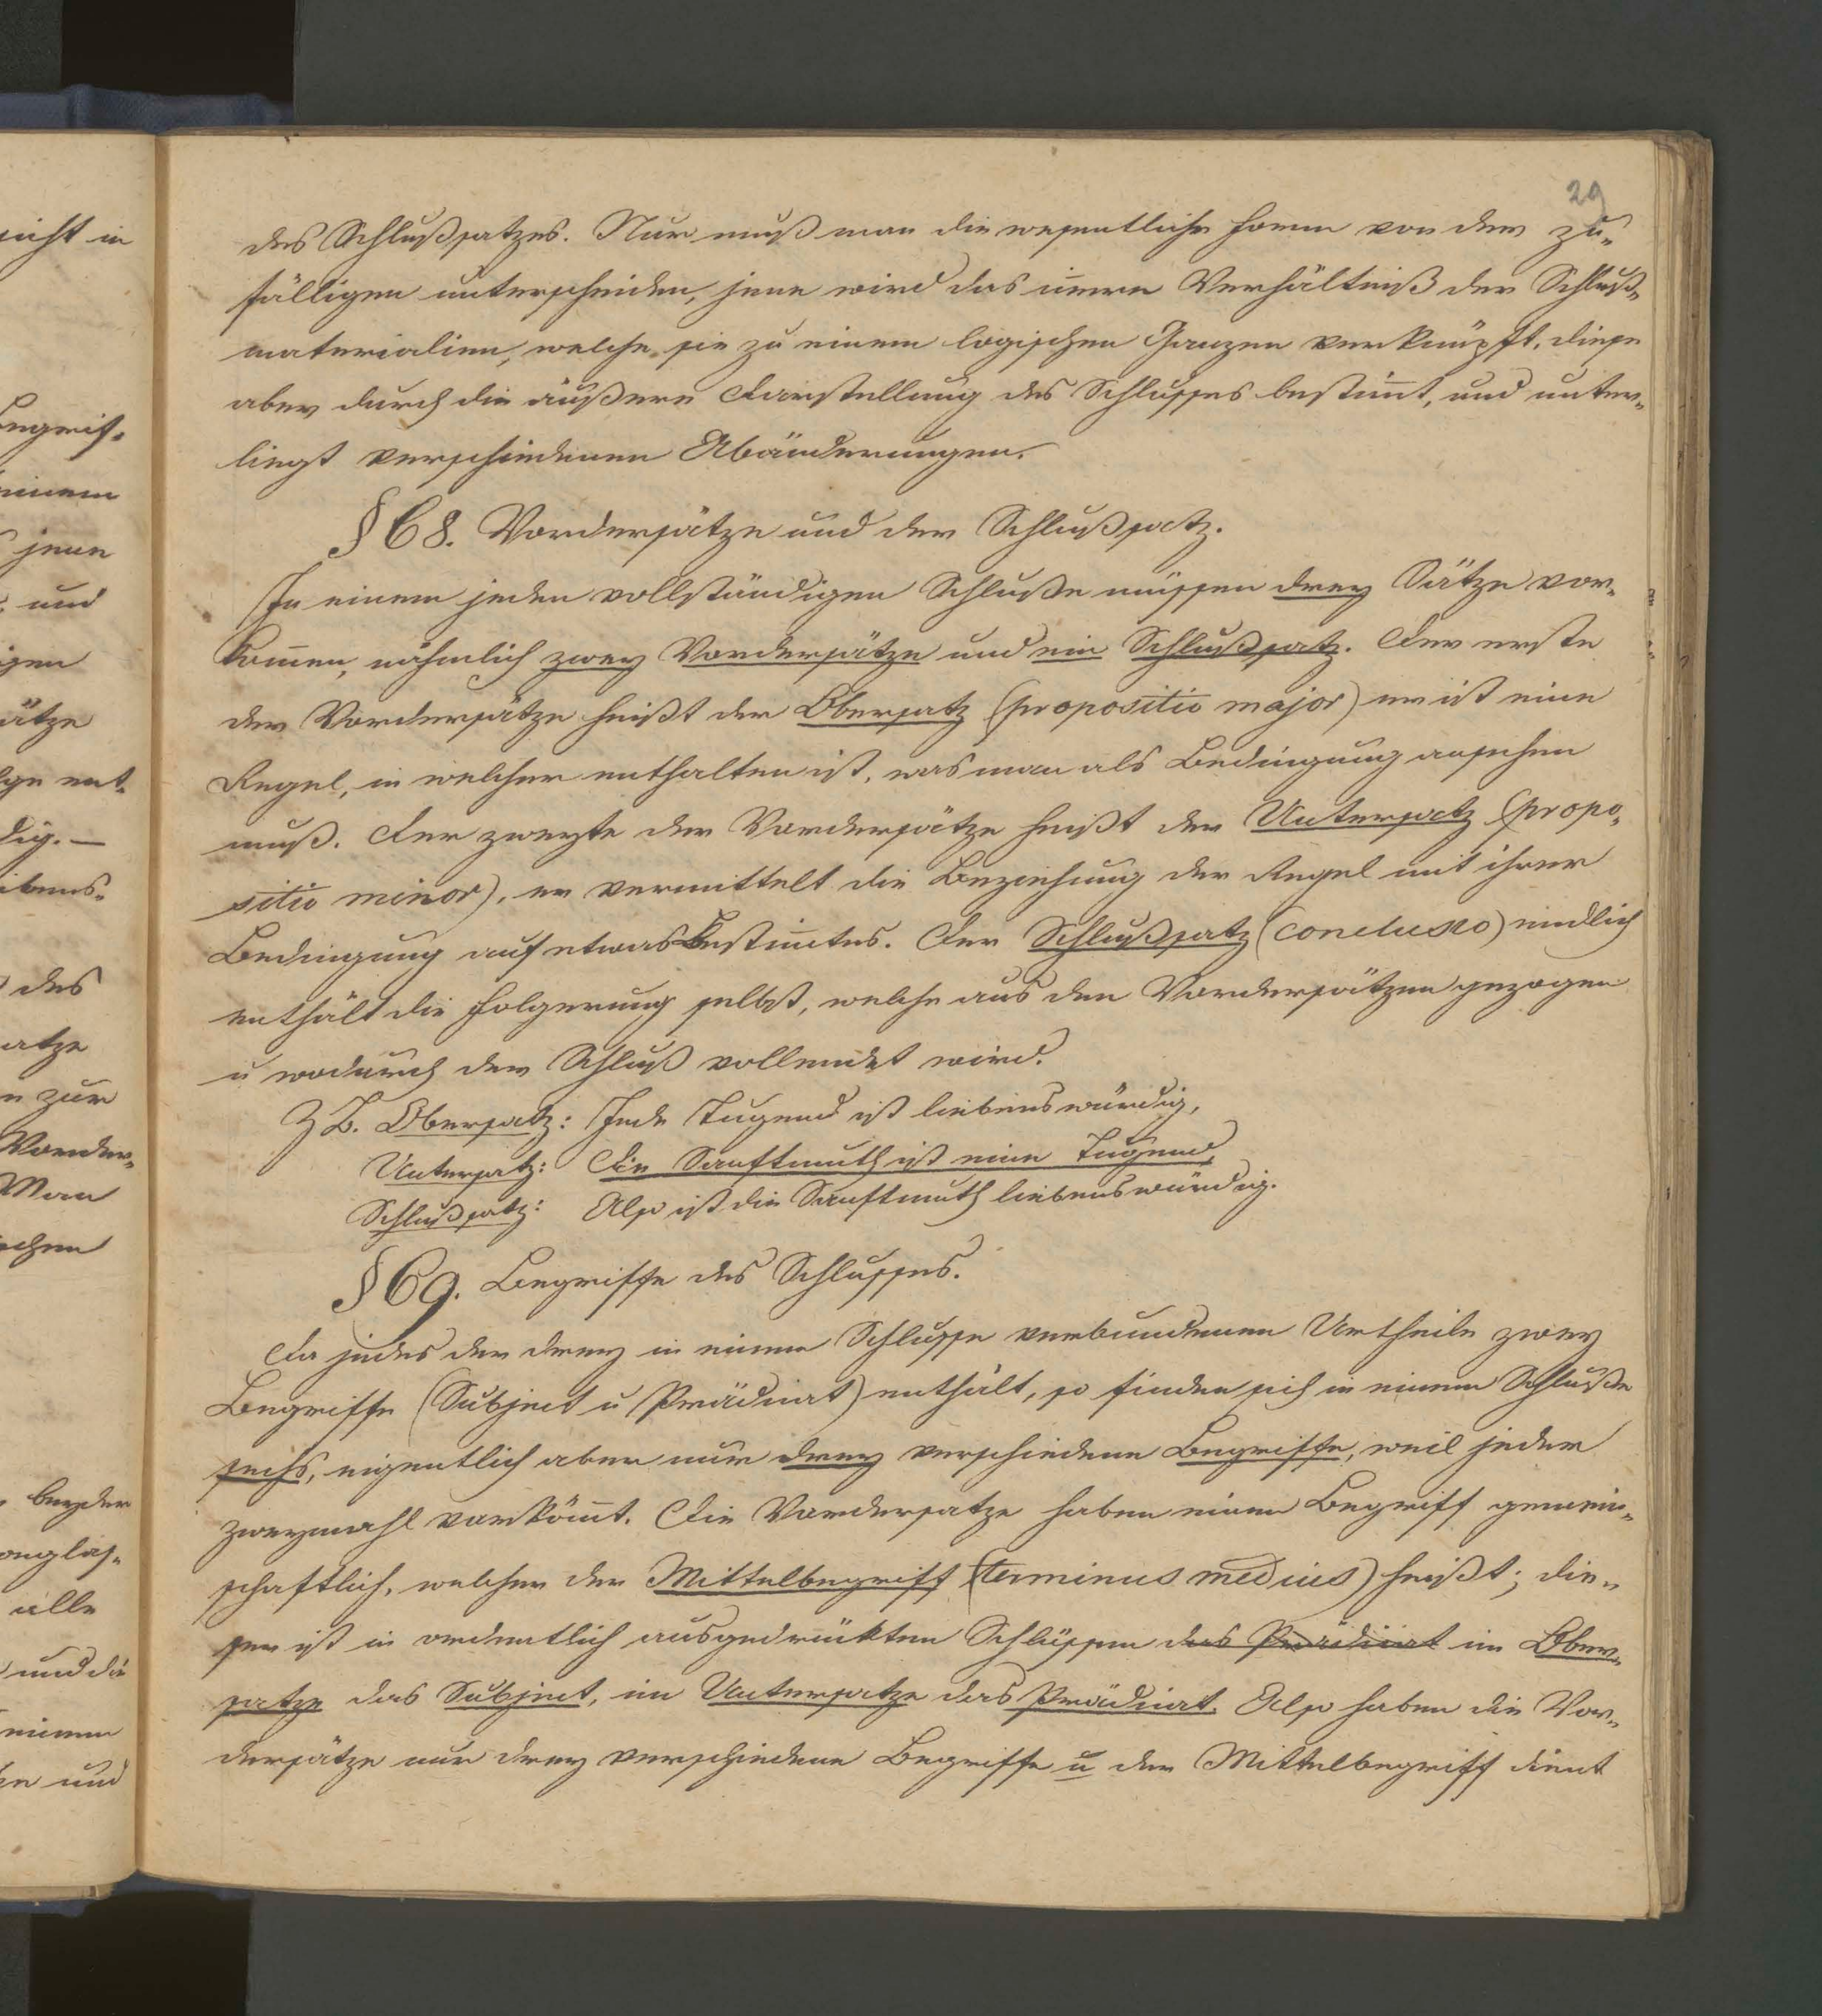 29
des Schlußsatzes. Nur muß man die wesentliche Form von der zu-
fälligen unterscheiden, jene wird das iñere Verhältniß der Schluß-
materialien, welche sie zu einem logischen Ganzen verknüpft, diese
aber durch die äußere Darstellung des Schlusses bestim̄t, und unter-
liegt verschiedenen Abänderungen.
§ 68. Vordersätze und der Schlußsatz.
In einem jeden vollständigen Schluße müssen drey Sätze vor-
kom̄en, nähmlich zwey Vordersätze und ein Schlußsatz. Der erste
der Vordersätze heißt der Obersatz (propositio major) er ist eine
Regel, in welcher enthalten ist, was man als Bedingung ansehen
muß. Der zweyte der Vordersätze heißt der Untersatz (propo-
sitio minor), er vermittelt die Beziehung der Regel mit ihrer
Bedingung auf etwas Bestim̄tes. Der Schlußsatz (conclusio) endlich
enthält die Folgerung selbst, welche aus den Vordersätzen gezogen
u wodurch der Schluß vollendet wird.
Z B. Obersatz: Jede Tugend ist liebenswürdig,
Untersatz: Die Sanftmuth ist eine Tugend,
Schlußsatz: Also ist die Sanftmuth liebenswürdig.
§ 69. Begriffe des Schlusses.
Da jedes der drey in einem Schlusse verbundenen Urtheile zwey
Begriffe (Subject u Prädicat) enthält, so finden sich in einem Schluße
sechs, eigentlich aber nur drey verschiedene Begriffe, weil jeder
zweymahl vorköm̄t. Die Vordersatze haben einen Begriff gemein-
schaftlich, welcher der Mittelbegriff (terminus medius) heißt; die-
ser ist in ordentlich ausgedrückten Schlüssen das Prädicat im Ober-
satze das Subject, im Untersatze das Prädicat. Also haben die Vor-
dersätze nur drey verschiedene Begriffe u der Mittelbegriff dient